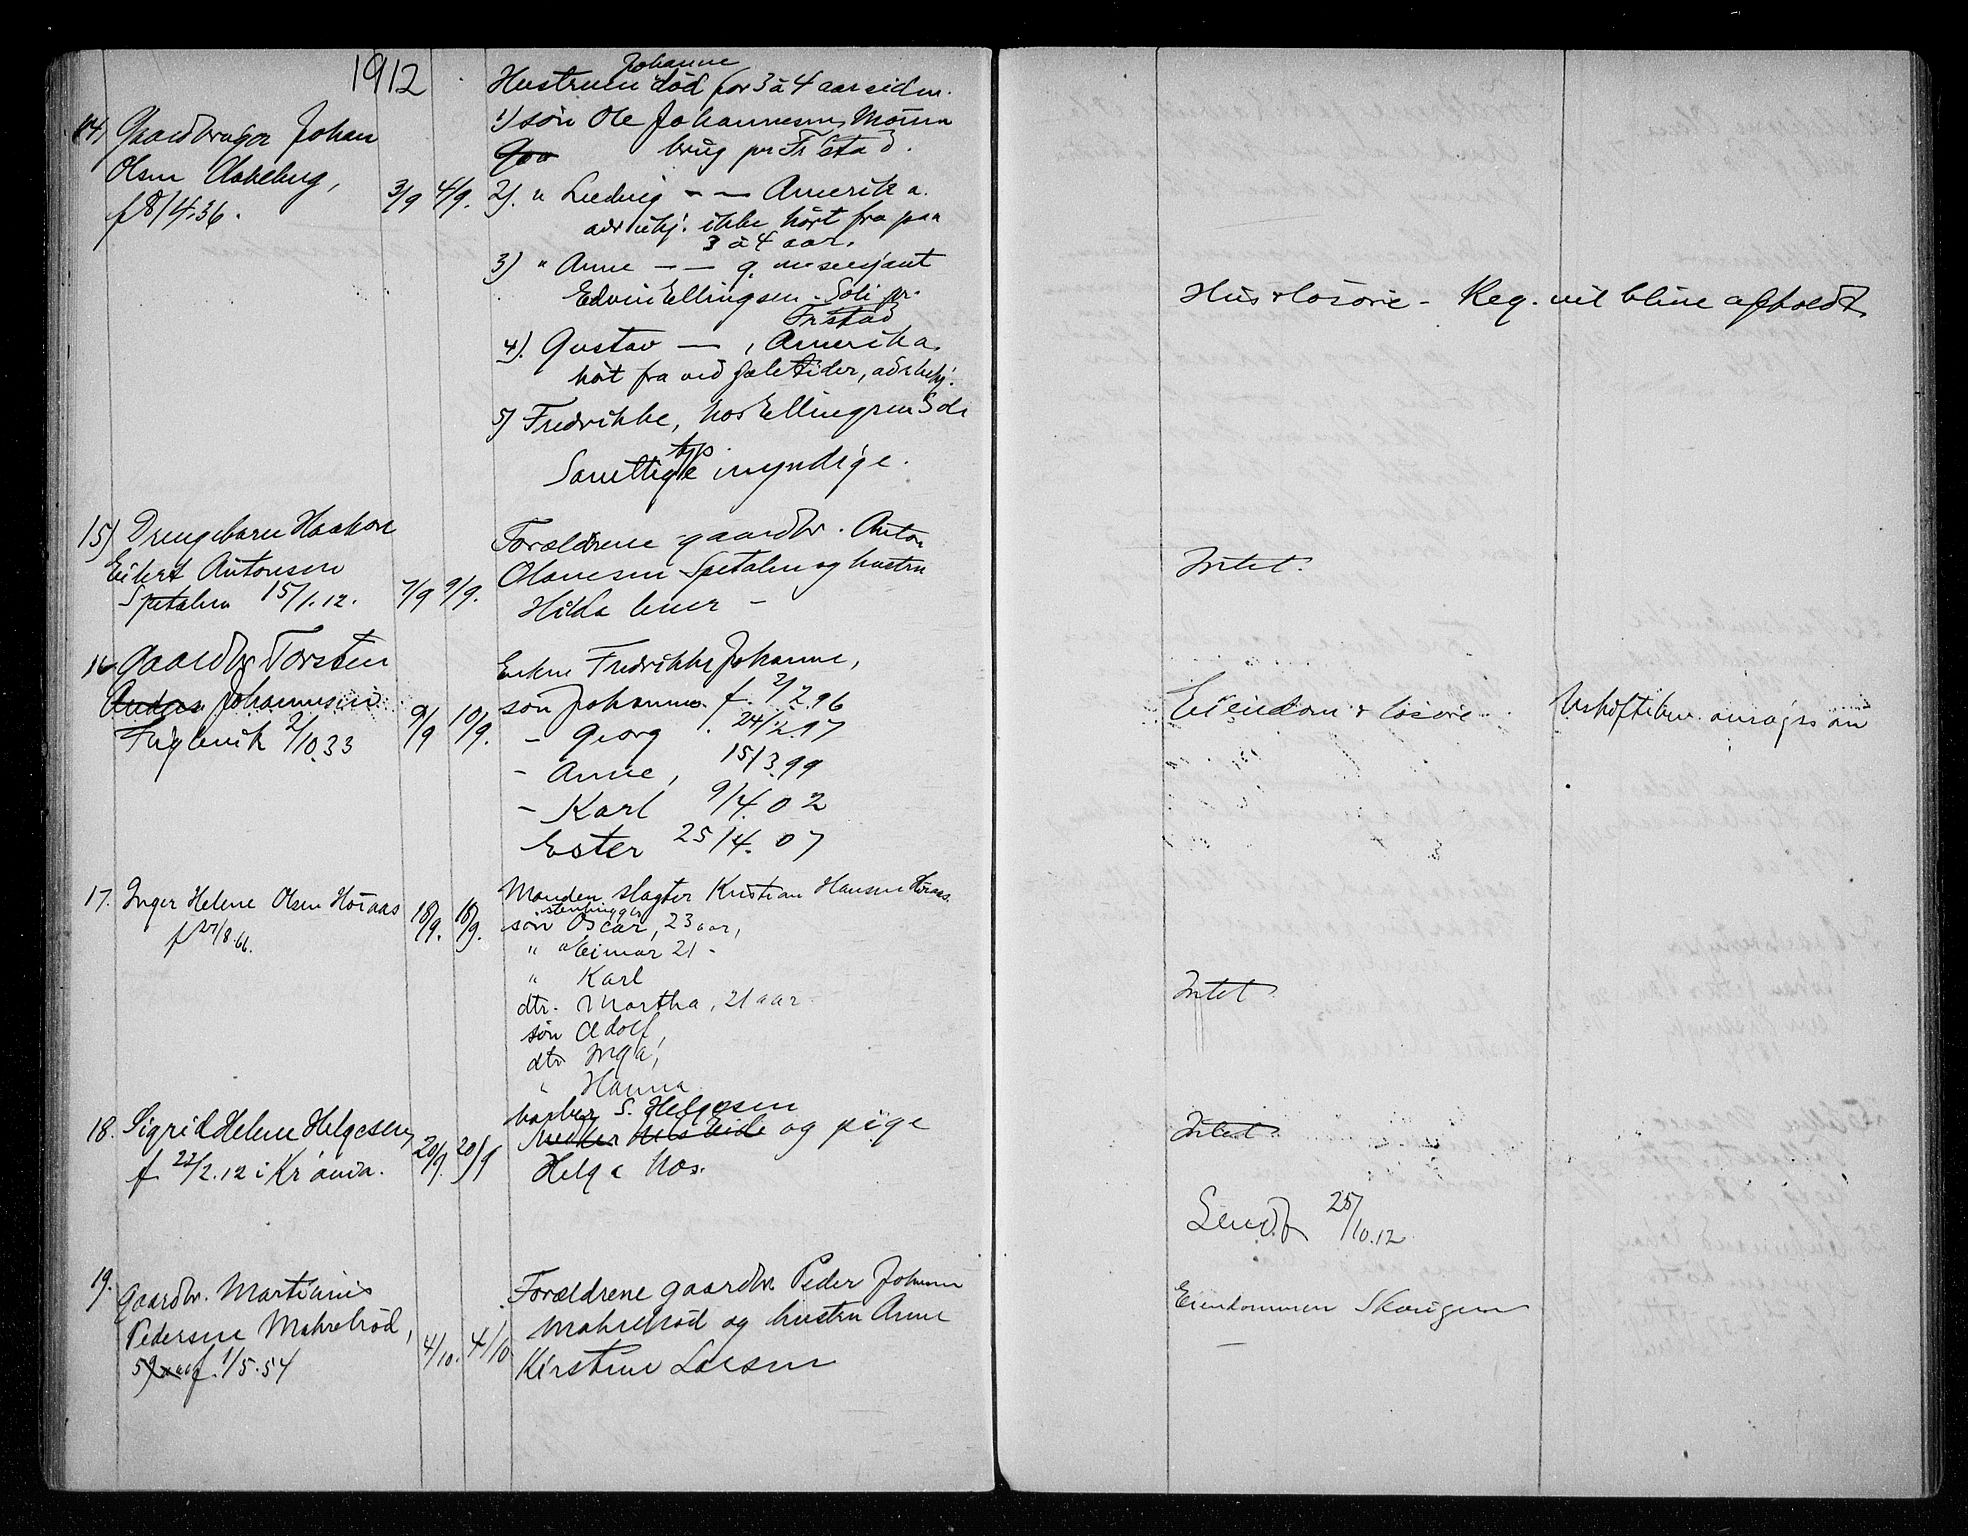 1912
Johanne
Hustruen död for 3 à 4 aar siden.
14) Gaardbruger Johan
Olsen
f 8/4.36.
3/9 4/9.
1) sön Ole Johannesen,
brug pr Fr stad.
2). " Ludvig — — Amerika.
adr ubkj. ikke hört fra paa
3 à 4 aar.
3) " Anne — — g. m
Edvin Ellingsen. Soli pr.
Fr stad
4). Gustav — , Amerika.
hört fra ved juletider, adr ubkj.
5) Fredrikke, hos Ellingsen Soli
Samtlige myndige.
Hus & lösöre - Reg. vil blive afholdt
15) Drengebarn Haakon
Eilert Antonsen
Spetalen 15/1.12.
7/9 9/9.
Forældrene gaardbr. Anton
Olavesen Spetalen og hustru
Hilda
Intet.
16 Gaardbr Torsten
Johannesen
2/10.33
9/9 10/9.
Enken Fredrikke Johanne,
sön Johannes. f. 2/2.96
- Georg . 24/2.97
- Anne, 15/3.99
- Karl 9/4.02
Ester 25/4.07
Eiendom & lösöre
Uskiftebev. ansøges om
17. Inger Helene Olsen Höraas
f 27/8.66.
18/9. 18/9.
Manden slagter Kristian Hansen Höraas.
stenhugger
sön Oscar, 23 aar,
" Meimar 21 -
" Karl
dtr. Martha, 21 aar
sön Adolf,
dtr Inga,
" Hanna
Intet
18. Sigrid Helene Helgesen,
f. 22/2.12 i Kr ania.
20/9. 20/9
barber S. Helgesen
og pige
Helga Næs.
Intet
Sendt 25/10.12
19. Gaardbr. Martinius
Pedersen Mahrebröd,
f. 1/5.54
4/10. 4/10
Forældrene gaardbr. Peder Johansen
Mahrebröd og hustru Anne
Kirstine Larsen
Eiendommen Skaugen